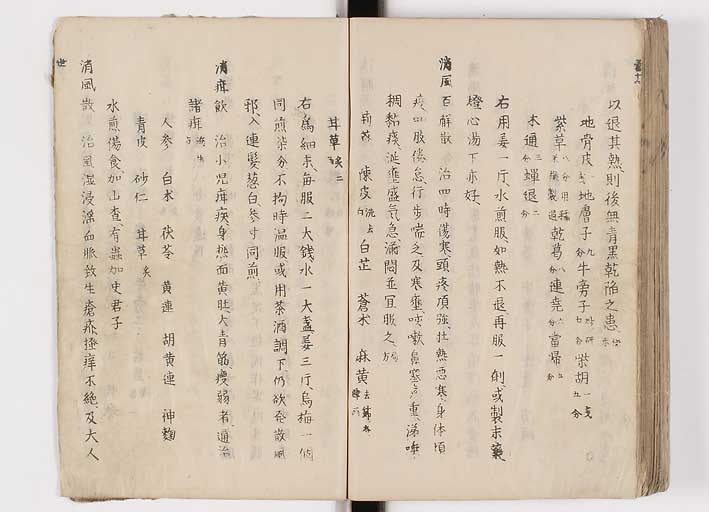 以退其熱、則後無青黑乾陷之患、
地骨皮 地膚子 九分 牛旁子 七分 炒研 柴胡 一戔五分
紫草 八分 乾葛 八分 連堯 六分 當帰 五分
木通 三分 蟬退 二分
右用姜一斤、水煎服、如熱不退、再服一劑、或製末
燈心湯下亦好、
消風百解散 治四時傷寒、頭疼項強、壮熱悪寒、身体煩
疼、四肢倦怠、行步喘乏、及寒壅咳嗽、鼻塞声重、涕唾
稠黏、痰涎壅盛、気急満悶、並宜服之、方
荊芥 陳皮 洗去白 白芷 蒼朮 麻黄 去節
甘草 炙 二
右為細末、每服二大錢、水一大盞、姜三斤、烏梅一個
同煎柒分、不拘時溫服、或用茶酒調下、仍欲発散風
邪、入連鬚葱白参寸同煎、
消疳飲 治小児疳疾、身熱、面黄、肚大青筋、瘦弱者、通治
諸疳 方
人参 白朮 茯苓 黄連 胡黄連 神麴
青皮 砂仁 甘草 炙
水煎湯食、加山査、有蟲加史君子
消風散 治風湿浸淫血脈、致生瘡疥、搔痒不絶、及大人
世